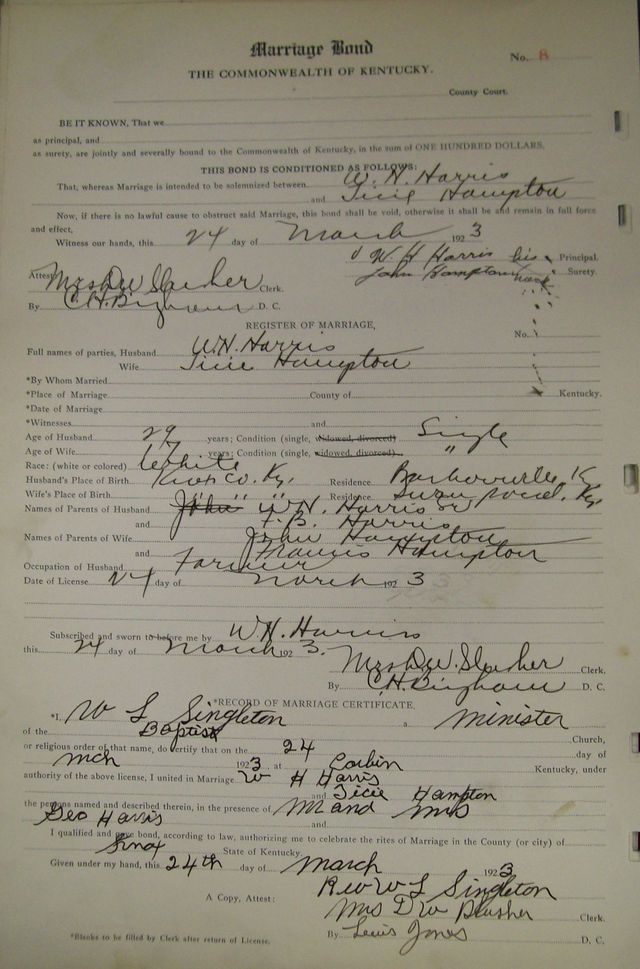 Marriage Bond
No. 8
THE COMMONWEALTH OF KENTUCKY.
County Court.
BE IT KNOWN, That we
as principal, and
as surety, are jointly and severally bound to the Commonwealth of Kentucky, in the sum of ONE HUNDRED DOLLARS.
THIS BOND IS CONDITIONED AS FOLLOWS:
That, whereas Marriage is intended to be solemnized between W. H. Harris
and Ticie Hampton
Now, if there is no lawful cause to obstruct said Marriage, this bond shall be void, otherwise it shall be and remain in full force
and effect,
Witness our hands, this 24 day of March 1923
W H Harris his Principal,
Attest John Hampton mark Surety.
Mrs D W Slusher Clerk.
By C. H. Bingham D. C.
REGISTER OF MARRIAGE,
No.
Full names of parties, Husband W. H. Harris
Wife Ticie Hampton
*By Whom Married
*Place of Marriage County of Kentucky.
*Date of Marriage
*Witnesses and
Age of Husband 29 years; Condition (single, widowed, divorced) Single
Age of Wife 17 years; Condition (single, widowed, divorced) "
Race: (white or colored) White
Husband's Place of Birth Knox Co. Ky. Residence Barbourville, Ky
Wife's Place of Birth " " " Residence Ky.
Names of Parents of Husband John W. H. Harris Sr
and F. B. Harris
Names of Parents of Wife John Hampton
and Francis Hampton
Occupation of Husband Farmer
Date of License 24 day of March 1923
Subscribed and sworn to before me by W. H. Harris
this 24 day of March 1923.
Mrs D. W. Slusher Clerk.
By C. H. Bingham D. C.
*RECORD OF MARRIAGE CERTIFICATE.
*I, W L Singleton a minister
of the Baptist Church,
or religious order of that name, do certify that on the 24 day of
mch 1923, at Corbin Kentucky, under
authority of the above license, I united in Marriage W H Harris
and Ticie Hampton
the persons named and described therein, in the presence of Mr and Mrs
Geo Harris and
I qualified and gave bond, according to law, authorizing me to celebrate the rites of Marriage in the County (or city) of
Knox State of Kentucky.
Given under my hand, this 24th day of March 1923
Rev W L Singleton
A Copy, Attest: Mrs D W Slusher Clerk.
*Blanks to be filled by Clerk after return of License. By Lewis Jones D. C.